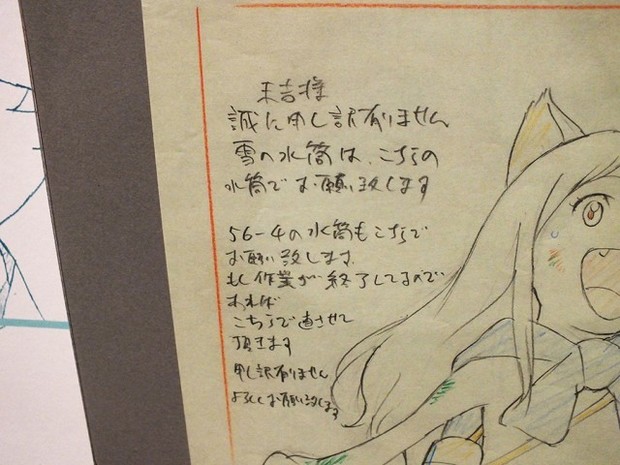 末吉様
誠に申し訳有りません
雪の水筒は、こちらの
水筒でお願い致します
56-4の水筒もこちらで
お願い致します。
もし作業が終了してるので
あれば
こちらで直させて
頂きます
申し訳有りません
よろしくお願い致します